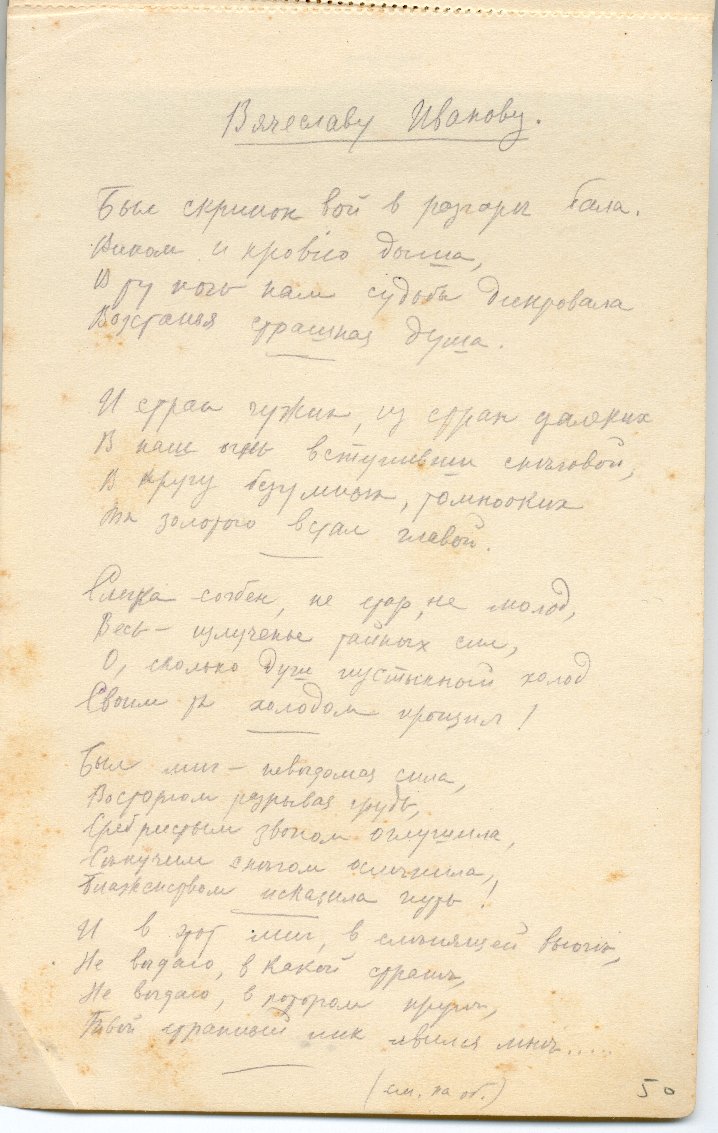 Вячеславу Иванову.
Был скрипок вой в разгаре бала.
Вином и кровiю дыша,
В ту ночь нам судьбы диктовала
Возстанья страшная душа.
И стран чужих, из стран далеких
В наш огнь вступивши снѣговой,
В кругу безумных, томнооких
Ты золотою встал главой.
Слегка согбен, не стар, не молод,
Весь – излученье тайных сил,
О, сколько душ пустынный холод
Своим ты холодом пронзил!
Был миг – невѣдомая сила,
Восторгом разрывая грудь,
Сребристым звоном оглушила,
Сѣкучим снѣгом ослѣпила,
Блаженством исказила путь!
И в этот миг, в слѣпящей вьюгѣ,
Не вѣдаю, в какой странѣ,
Не вѣдаю, в котором кругѣ,
Твой странный лик явился мнѣ.....
(см. на об.)
50